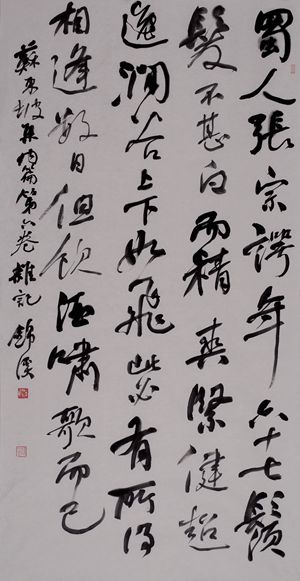 蜀人張宗諤年六十七鬚
髮不甚白而精爽緊健超
逸澗谷上下如飛此必有所得
相逢數日但飲酒嘯歌而已
蘇東坡集篇第六卷雜記